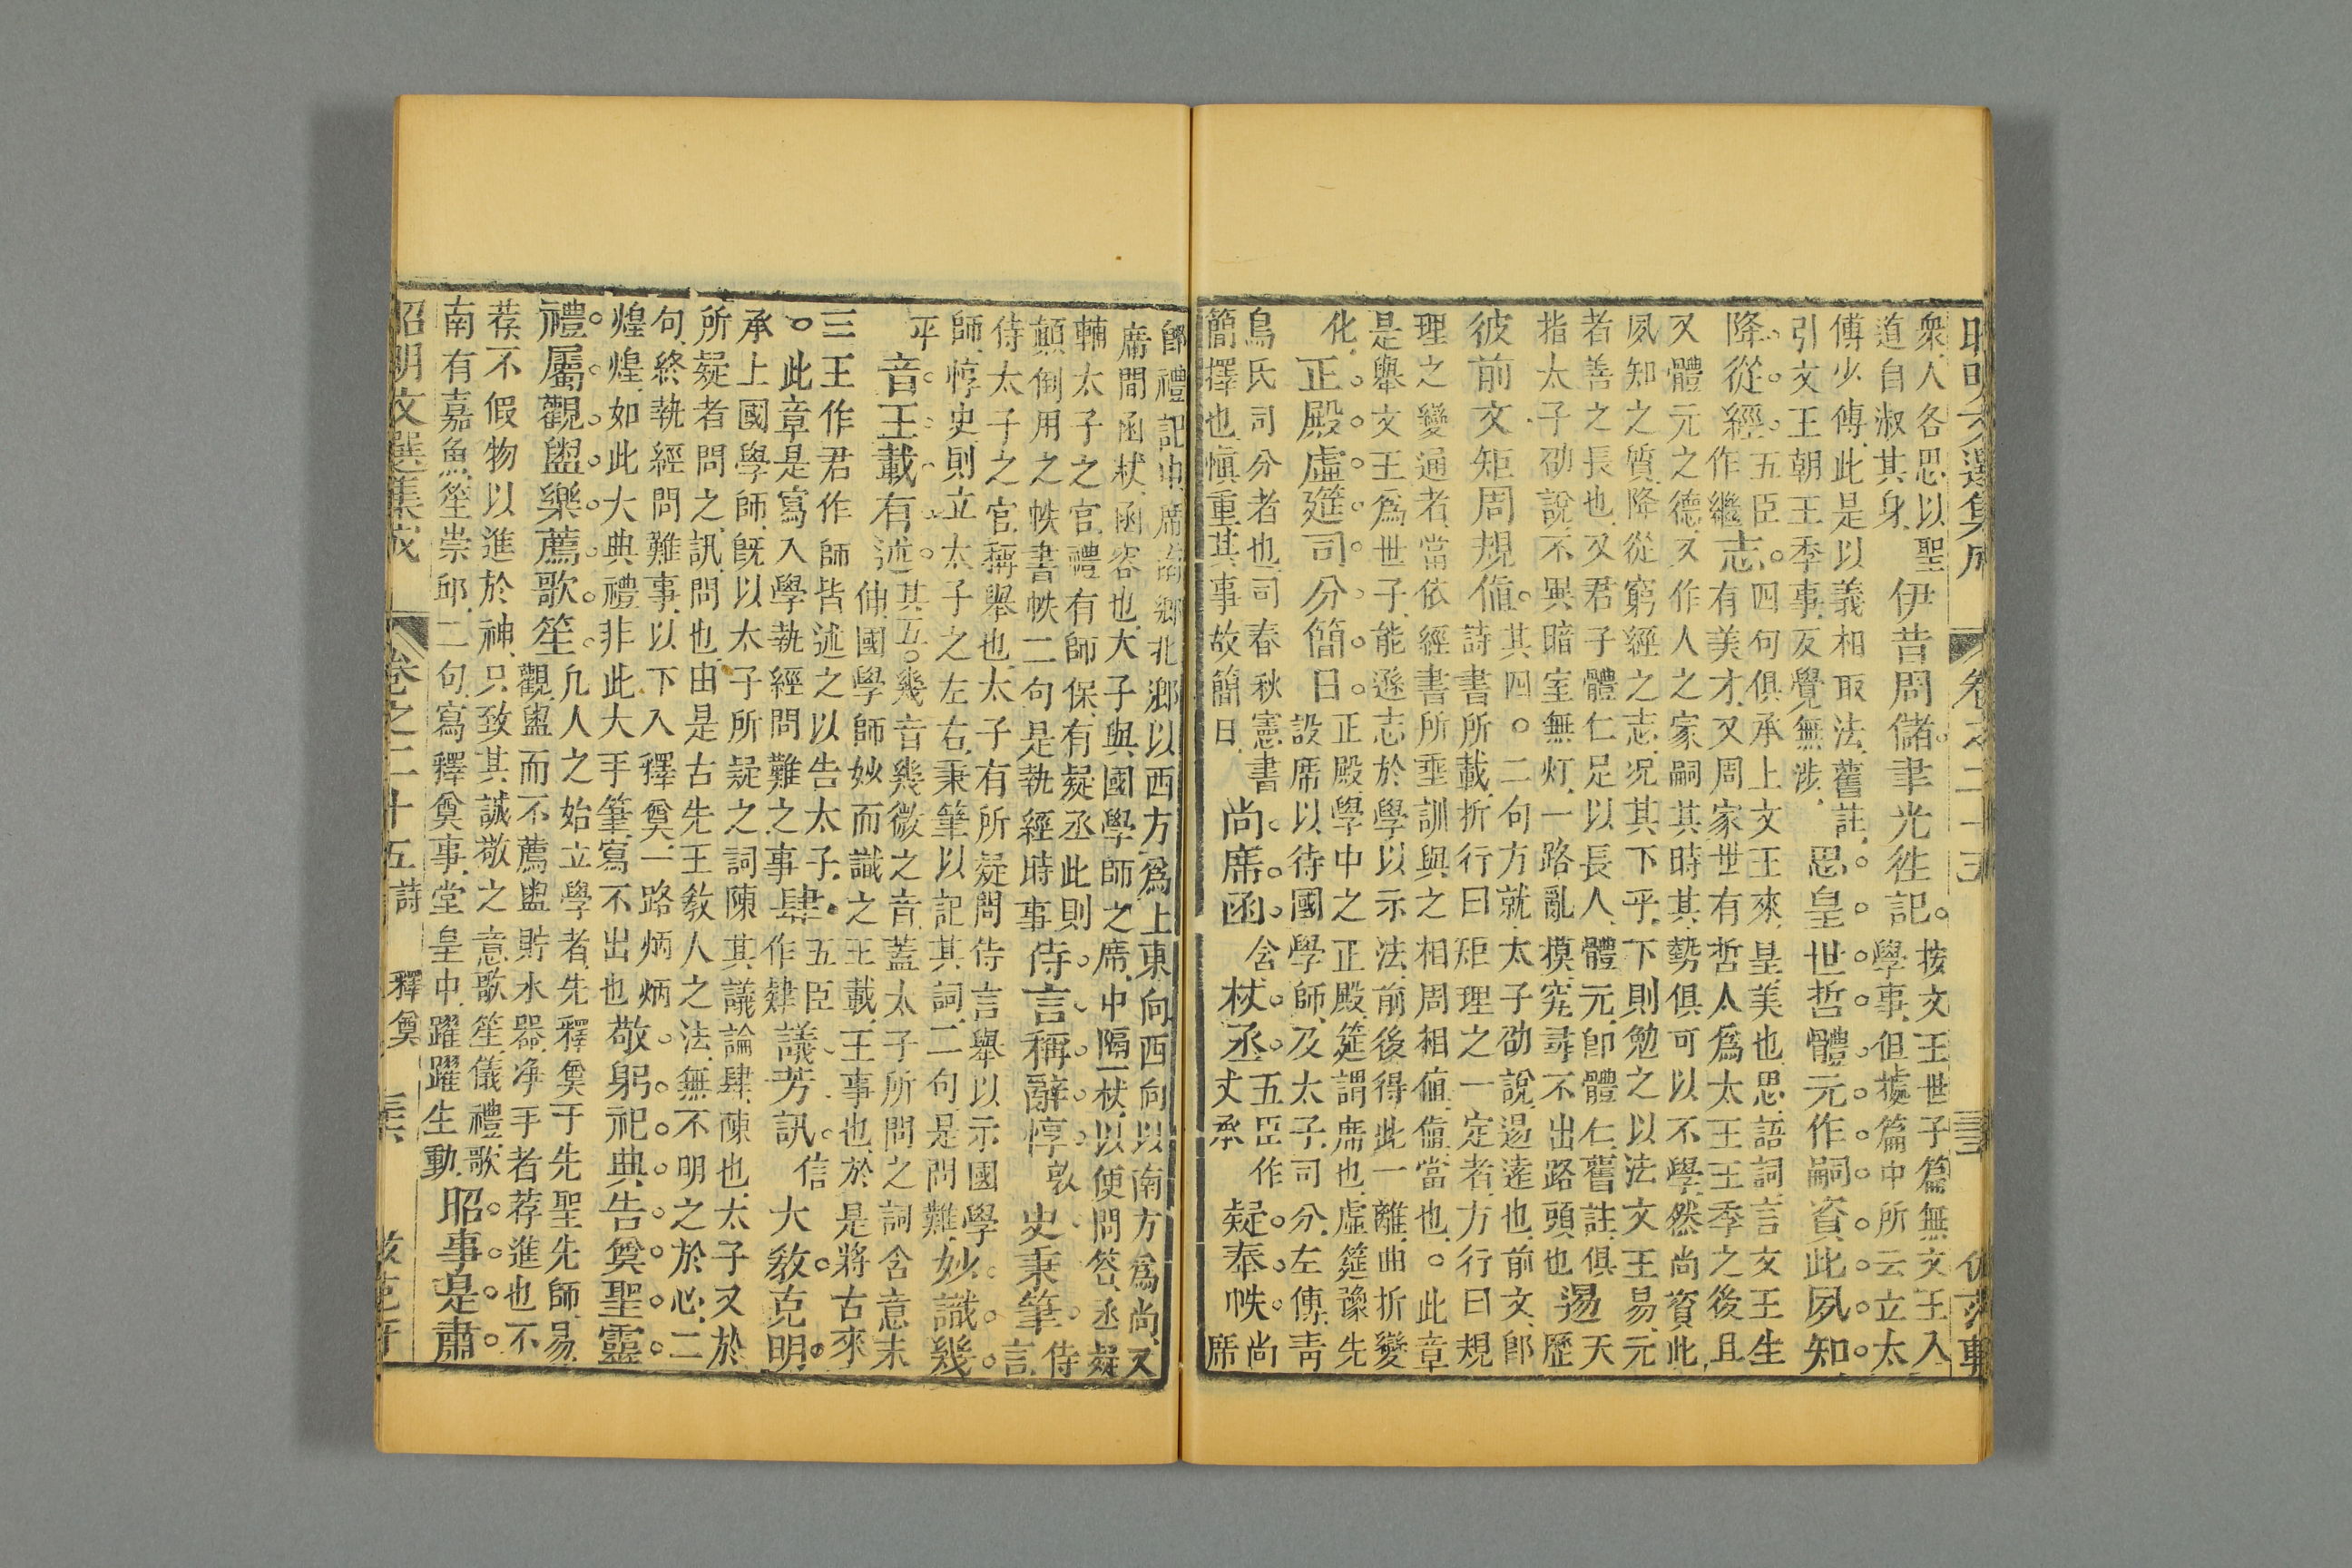 昭明文選集成 卷之二十五
衆人各思以聖
道自淑其身
伊昔周儲聿光往記
按文王世子篇無文王入
學事但據篇中所云立太
傅少傅此是以義相取法舊註
引文王朝王季事反覺無涉
思皇世哲體元作嗣資此夙知
降從經五臣作繼志
四句俱承上文王來皇美也思語詞言文王生
有美才又周家世有哲人爲太王王季之後且
又體元之德又作人之家嗣其時其勢俱可以不學然尚資此
夙知之質降從窮經之志况其下乎下則勉之以法文王易元
者善之長也又君子體仁足以長人體元卽體仁舊註俱
指太子劭說不異暗室無灯一路亂摸究尋不出路頭也
逷天歷
彼前文矩周規値
其四○二句方就太子劭說逷遠也前文卽
詩書所載折行曰矩理之一定者方行曰規
理之變通者當依經書所垂訓與之相周相値値當也○此章
是舉文王爲世子能遜志於學以示法前後得此一離曲折變
化
正殿虛筵司分簡日
正殿學中之正殿筵謂席也虛筵豫先
設席以待國學師及太子司分左傳靑
鳥氏司分者也司春秋憲書
簡擇也愼重其事故簡日
尚席函含杖丞五臣作丈承疑奉帙
尚
席
卽禮記中席南鄉北鄉以西方爲上東向西向以南方爲尚又
席間函杖函容也太子與國學師之席中隔一杖以便問答丞疑
輔太子之官禮有師保有疑丞此則
顛倒用之帙書帙二句是執經時事
侍言稱辭惇敦史秉筆
侍
言
侍太子之官稱舉也太子有所疑問侍言舉以示國學
師惇史則立太子之左右秉筆以記其詞二句是問難
妙識幾
平音王載有述
其五○幾音幾微之音蓋太子所問之詞含意未
伸國學師妙而識之王載王事也於是將古來
三王作君作師皆述之以告太子
○此章是寫入學執經問難之事
肆五臣作肄議芳訊信大敎克明
承上國學師旣以太子所疑之詞陳其議論肆陳也太子又於
所疑者問之訊問也由是古先王敎人之法無不明之於心二
句終執經問難事以下入釋奠一路炳炳
煌煌如此大典禮非此大手筆寫不出也
敬躬祀典告奠聖靈
禮屬觀盥樂薦歌笙
凡人之始立學者先釋奠于先聖先師易
觀盥而不薦盥貯水器净手者荐進也不
荐不假物以進於神只致其誠敬之意歌笙儀禮歌
南有嘉魚笙崇邱二句寫釋奠事堂皇中躍躍生動
昭事是肅
昭明文選集成 卷之二十五詩 釋奠